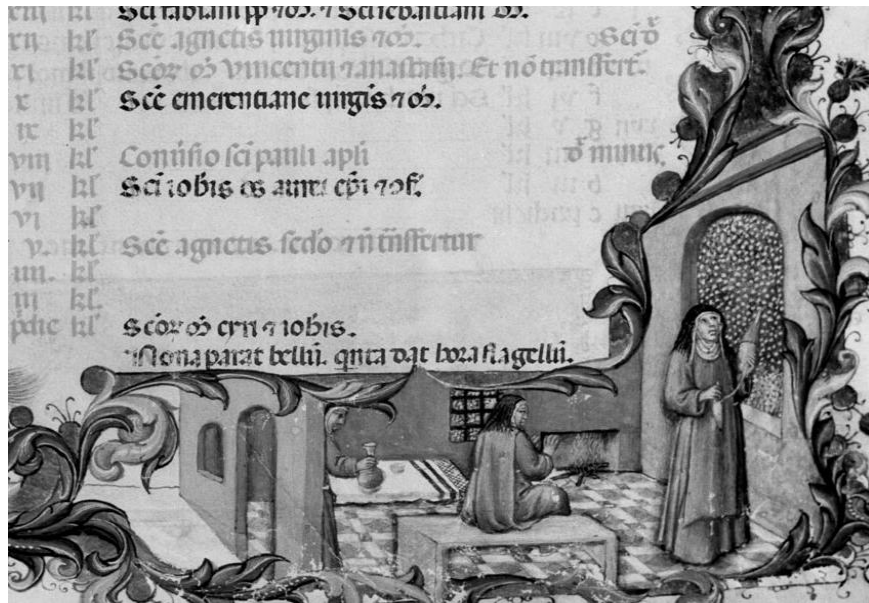 Sci fabiani pp ⁊ m̃. ⁊ Sci sebastiani m̃.
xii kl' Scẽ agnetis uirginis ⁊ m̃. Sci
xi kl' Scõr m̃ Vincentii ⁊ anastasii. Et nõ transfert.
x kl' Scẽ emerentiane uirgis ⁊ m̃.
ix kl'
viii kl' Conuersio sci pauli apli
vii kl' Sci iohis os auri epi ⁊ ɔf.
vi kl'
v. kl' Scẽ agnetis secdo ⁊ ñ transfertur
iiii. kl'
iii kl'.
pdie kl' Scõr m̃ cyri ⁊ iohis.
Nona parat bellũ. qnta dat hora flagellũ.